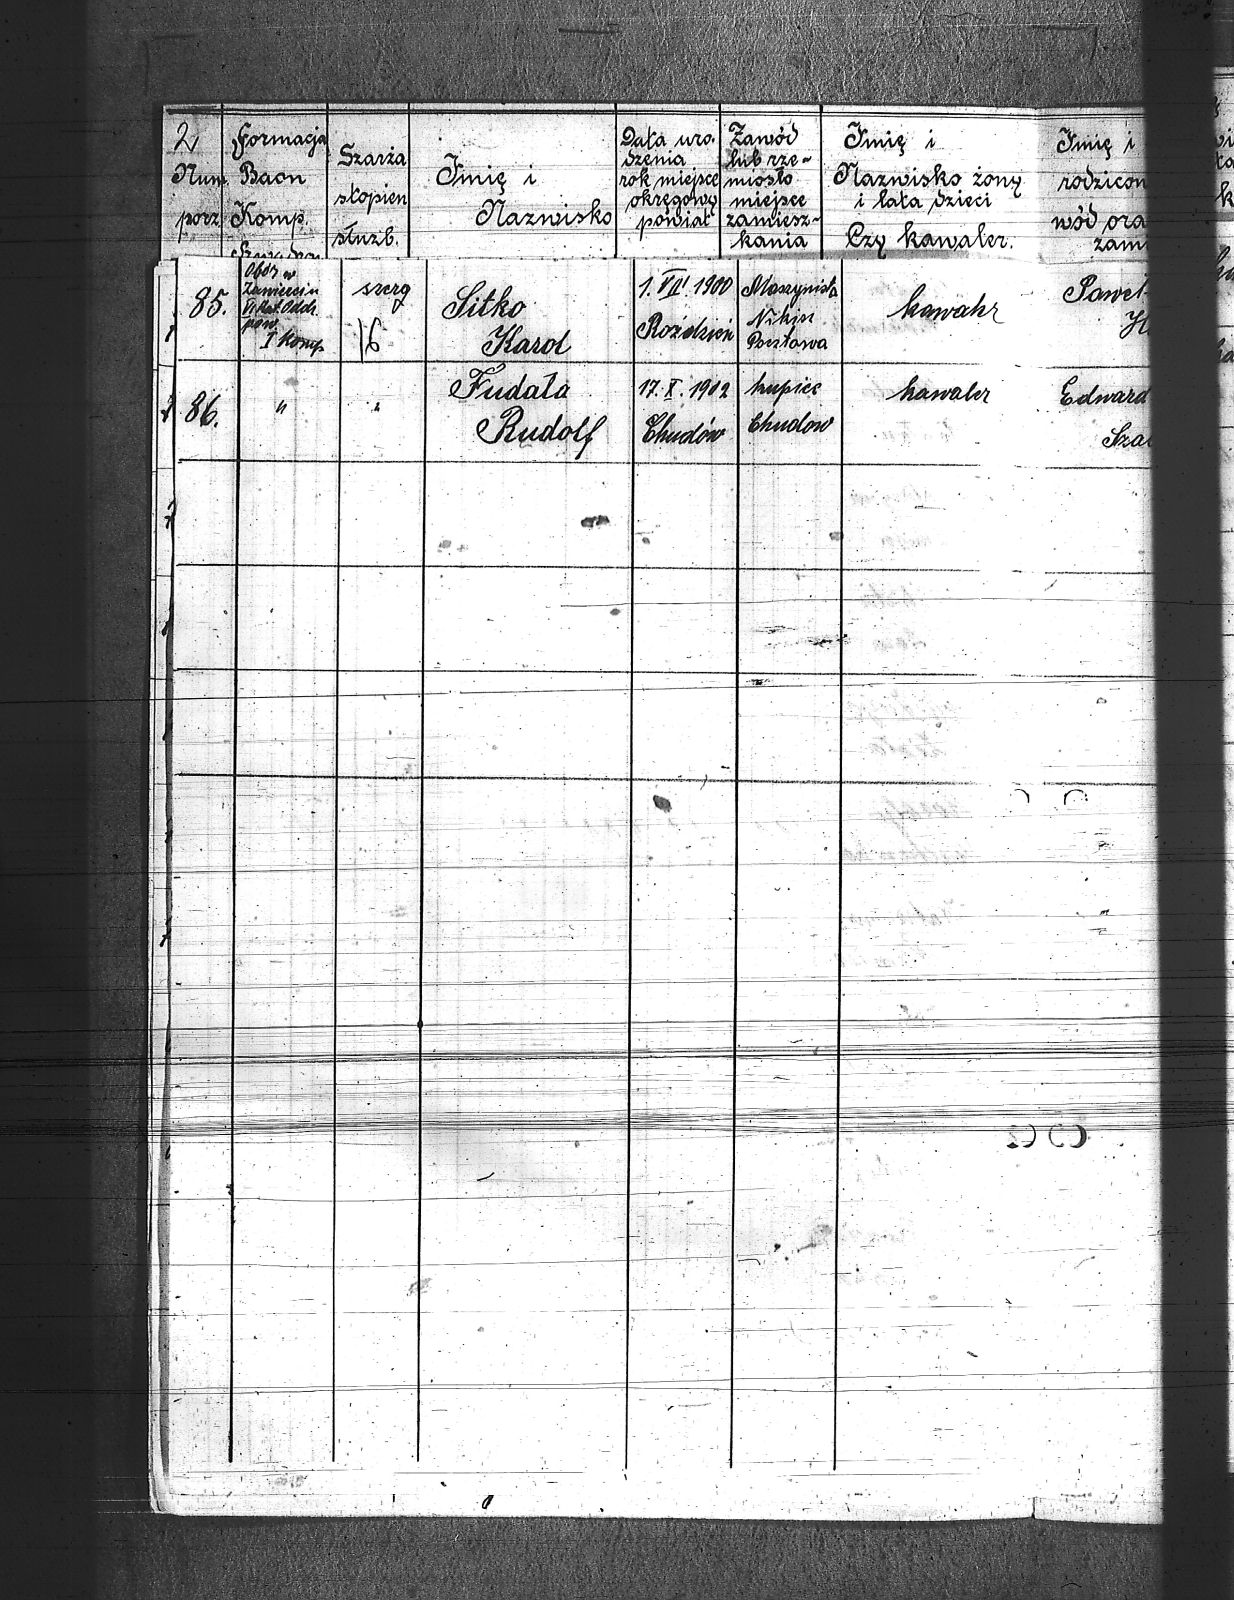 2
Num.
porz.
Formacja
Baon
Komp.
Szarża
stopień
służb.
Imię i
Nazwisko
Data uro-
dzenia
rok miejsce
okręgowy
powiat
Zawód
lub rze-
miosło
miejsce
zamiesz-
kania
Imię i
Nazwisko żony
i lata dzieci
Czy kawaler.
Imię i
rodzicon
wód ora
zami
85.
Obóz w
Zawierciu
pow.
I komp
szereg
16
Sitko
Karol
1. VII 1900
Roździeń
Maszynista
Pocztowa
kawaler
Paweł
86.
"
"
Fudała
Rudolf
17. X. 1902
Chudów
kupiec
Chudow
kawaler
Edward